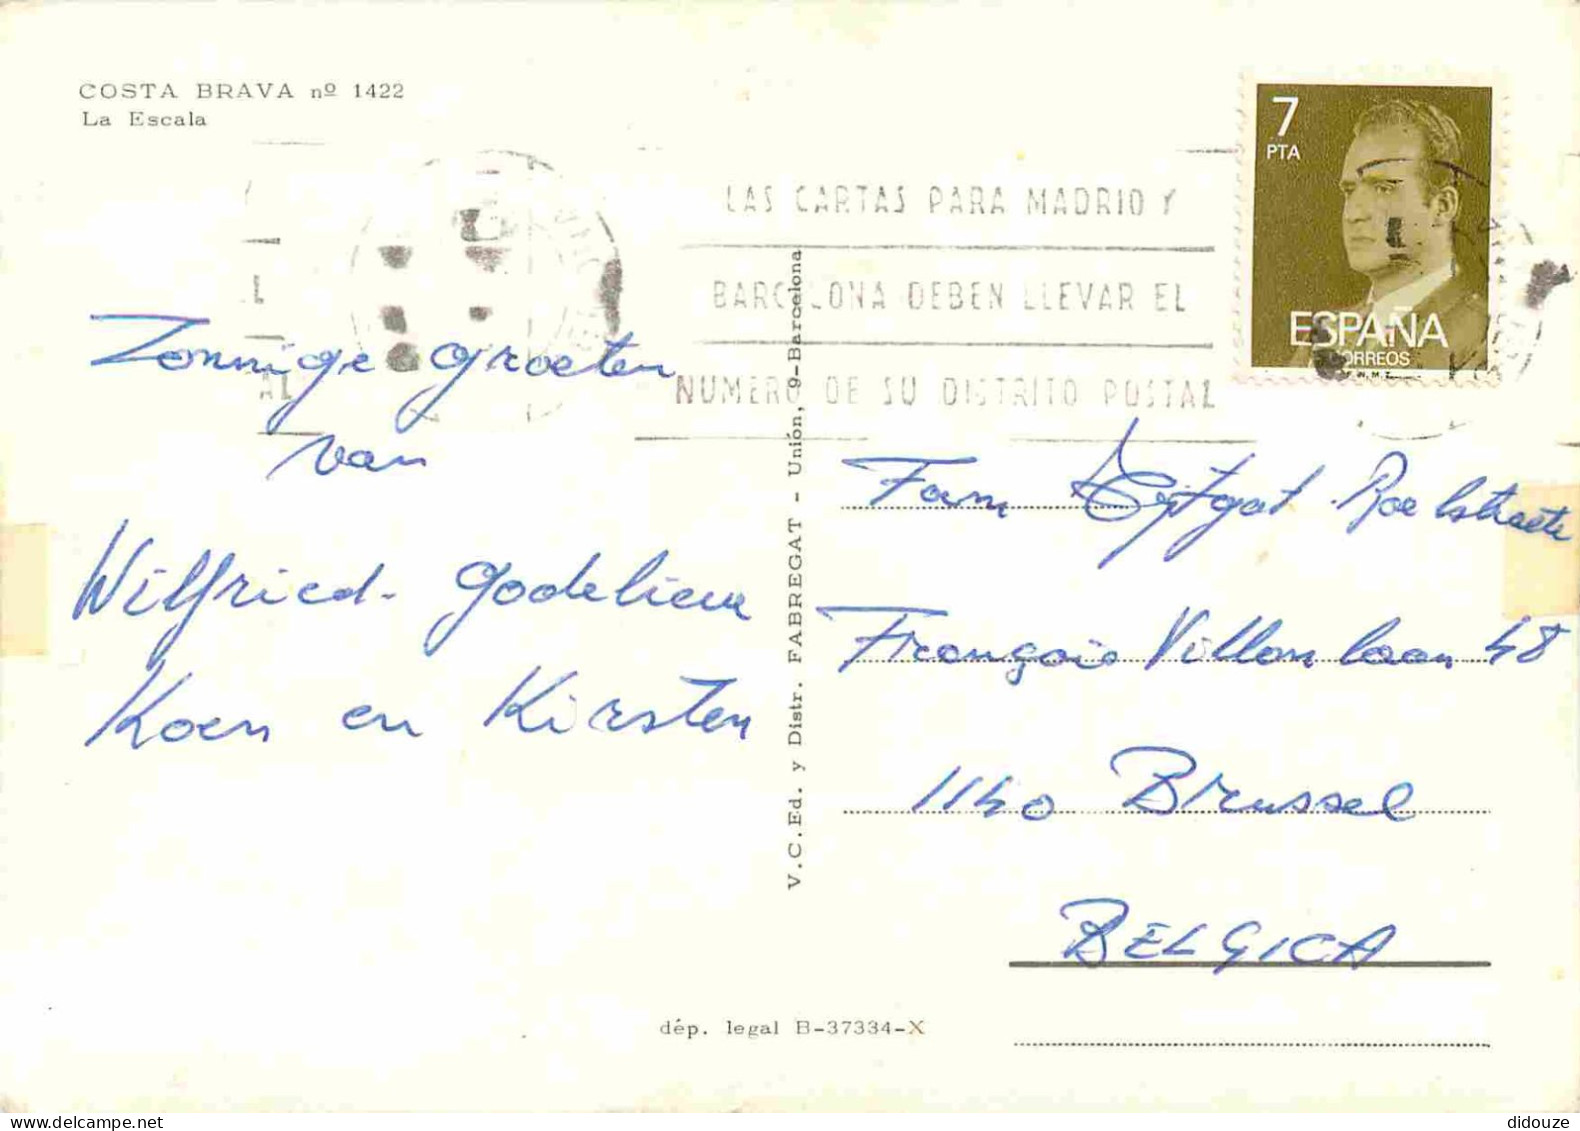 COSTA BRAVA nº 1422
La Escala
7
PTA
ESPAÑA
CORREOS
LAS CARTAS PARA MADRID Y
BARCELONA DEBEN LLEVAR EL
NUMERO DE SU DISTRITO POSTAL
Zonnige groeten
van
Wilfried - Godelieve
Koen en Kirsten
V.C.Ed. y Distr. FABREGAT - Unión, 9-Barcelona
Fam Eyfgat Roelstraete
François Villon laan 48
1140 Brussel
BELGICA
dép. legal B-37334-X
didouze